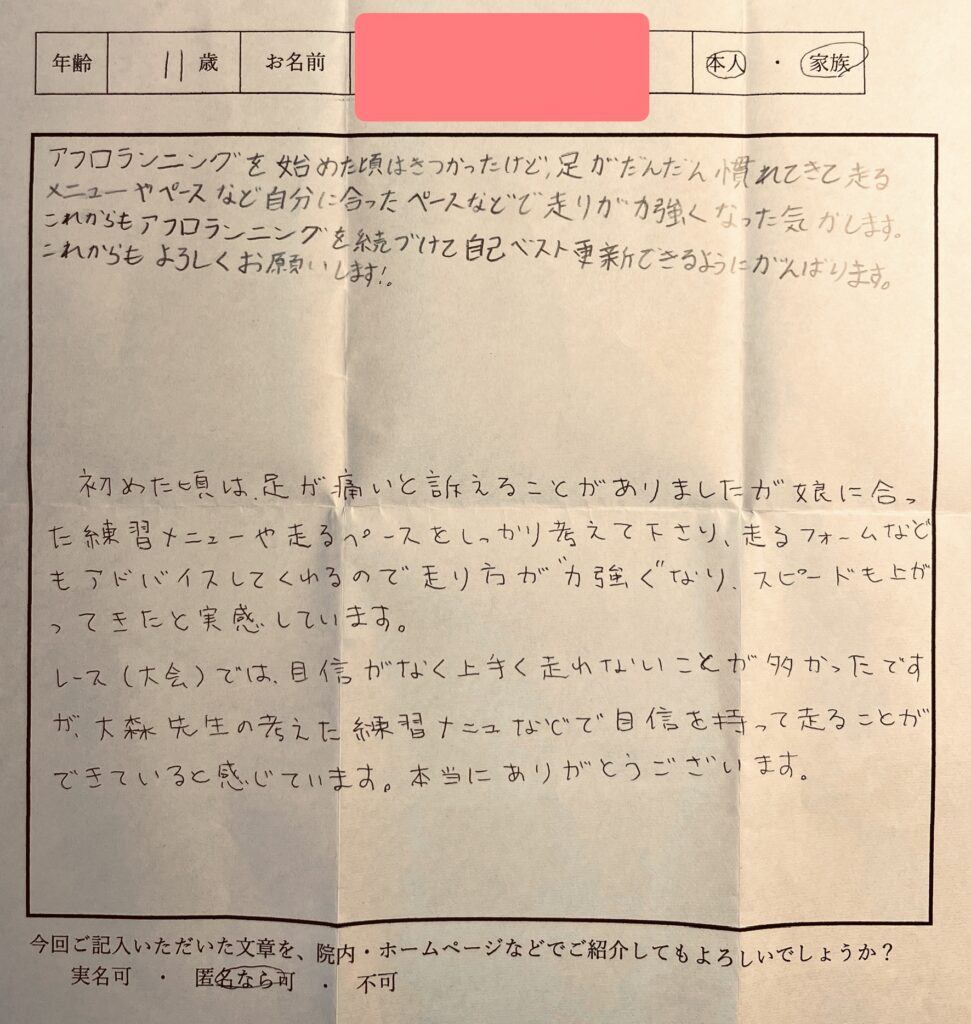 年齢 11 歳 お名前 本人 ・ 家族
アフロランニングを始めた頃はきつかったけど、足がだんだん慣れてきて走る
メニューやペースなど自分に合ったペースなどで走りが力強くなった気がします。
これからもアフロランニングを続づけて自己ベスト更新できるようにがんばります。
これからもよろしくお願いします!。
初めた頃は、足が痛いと訴えることがありましたが娘に合っ
た練習メニューや走るペースをしっかり考えて下さり、走るフォームなど
もアドバイスしてくれるので走り方が"力強く"なり、スピードも上が
ってきたと実感しています。
レース(大会)では、自信がなく上手く走れないことが多かったです
が、大森先生の考えた練習メニュなどで自信を持って走ることが
できていると感じています。本当にありがとうございます。
今回ご記入いただいた文章を、院内・ホームページなどでご紹介してもよろしいでしょうか?
実名可 ・ 匿名なら可 ・ 不可